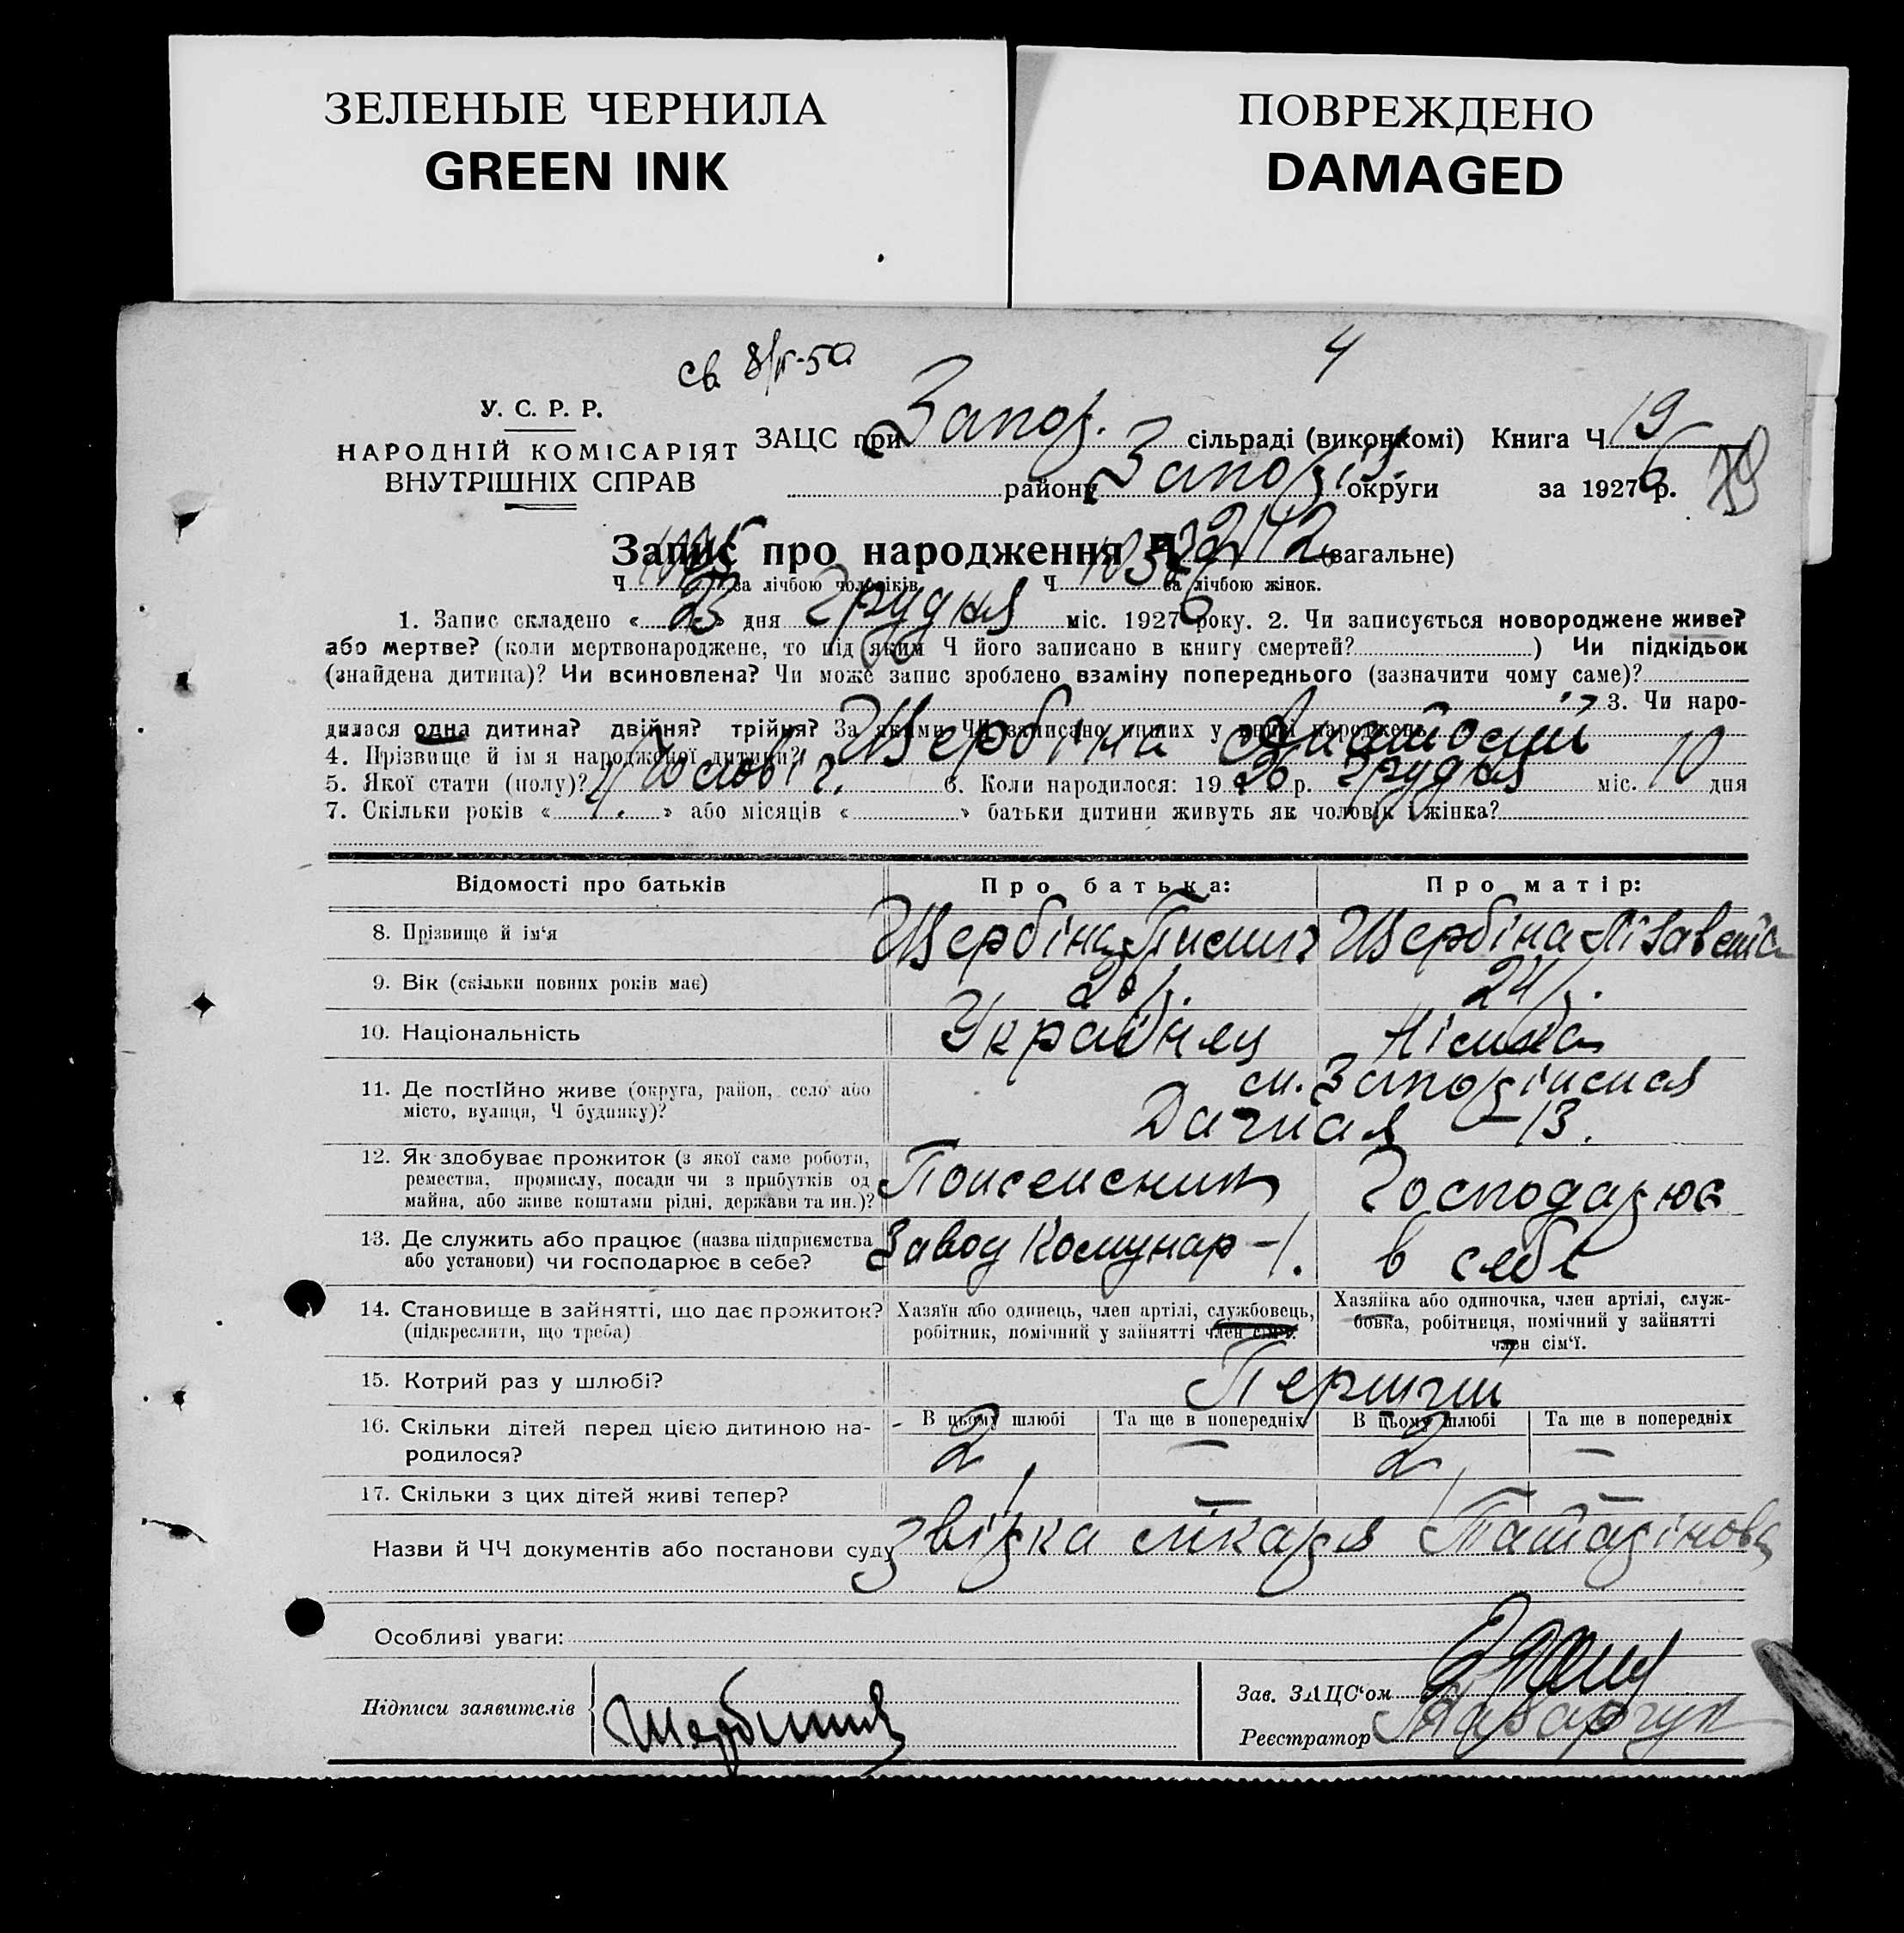 ЗЕЛЕНЫЕ ЧЕРНИЛА
GREEN INK
ПОВРЕЖДЕНО
DAMAGED
4
У. С. Р. Р.
НАРОДНІЙ КОМІСАРІЯТ
ВНУТРІШНІХ СПРАВ
ЗАЦС при Запор. сільраді (виконкомі) Книга Ч 19
району Запоріз. округи за 1926 р.
Запис про народження Ч 2142 (загальне)
Ч за лічбою чоловіків Ч за лічбою жінок.
1. Запис складено « 23 » дня Грудня міс. 1926 року. 2. Чи записується новороджене живе?
або мертве? (коли мертвонароджене, то під яким Ч його записано в книгу смертей? ) Чи підкідьок
(знайдена дитина)? Чи всиновлена? Чи може запис зроблено взаміну попереднього (зазначити чому саме)?
3. Чи наро-
дилася одна дитина? двійня? трійня? За якими ЧЧ записано инших у книзі народжень
4. Прізвище й ім'я народженої дитини? Щербина Анатолій
5. Якої стати (полу)? Чоловіч. 6. Коли народилося: 1926 р. Грудня міс. 10 дня
7. Скільки років « » або місяців « » батьки дитини живуть як чоловік і жінка?
Відомості про батьків
Про батька:
Про матір:
8. Прізвище й ім'я Щербіна Щербіна Лізавета
9. Вік (скільки повних років має) 24 р.
10. Національність Українец Німка
11. Де постійно живе (округа, район, село або місто, вулиця, Ч будинку)? м. Запоріжжя
Дачная — 13.
12. Як здобуває прожиток (з якої саме роботи, ремества, промислу, посади чи з прибутків од майна, або живе коштами рідні, держави та ин.)? Господарює
13. Де служить або працює (назва підприємства або установи) чи господарює в себе? Завод Комунар – 1. в себе
14. Становище в зайнятті, що дає прожиток? (підкреслити, що треба)
Хазяїн або одинець, член артілі, службовець, робітник, помічний у зайнятті член сім'ї.
Хазяйка або одиночка, член артілі, служ-
бовка, робітниця, помічний у зайнятті
член сім'ї.
15. Котрий раз у шлюбі? Перший
В цьому шлюбі Та ще в попередніх В цьому шлюбі Та ще в попередніх
16. Скільки дітей перед цією дитиною на-
родилося? 2 — 2 —
17. Скільки з цих дітей живі тепер? 1 — 1 —
Назви й ЧЧ документів або постанови суду звірка лікаря
Особливі уваги:
Підписи заявителів
Зав. ЗАЦС'ом
Реєстратор